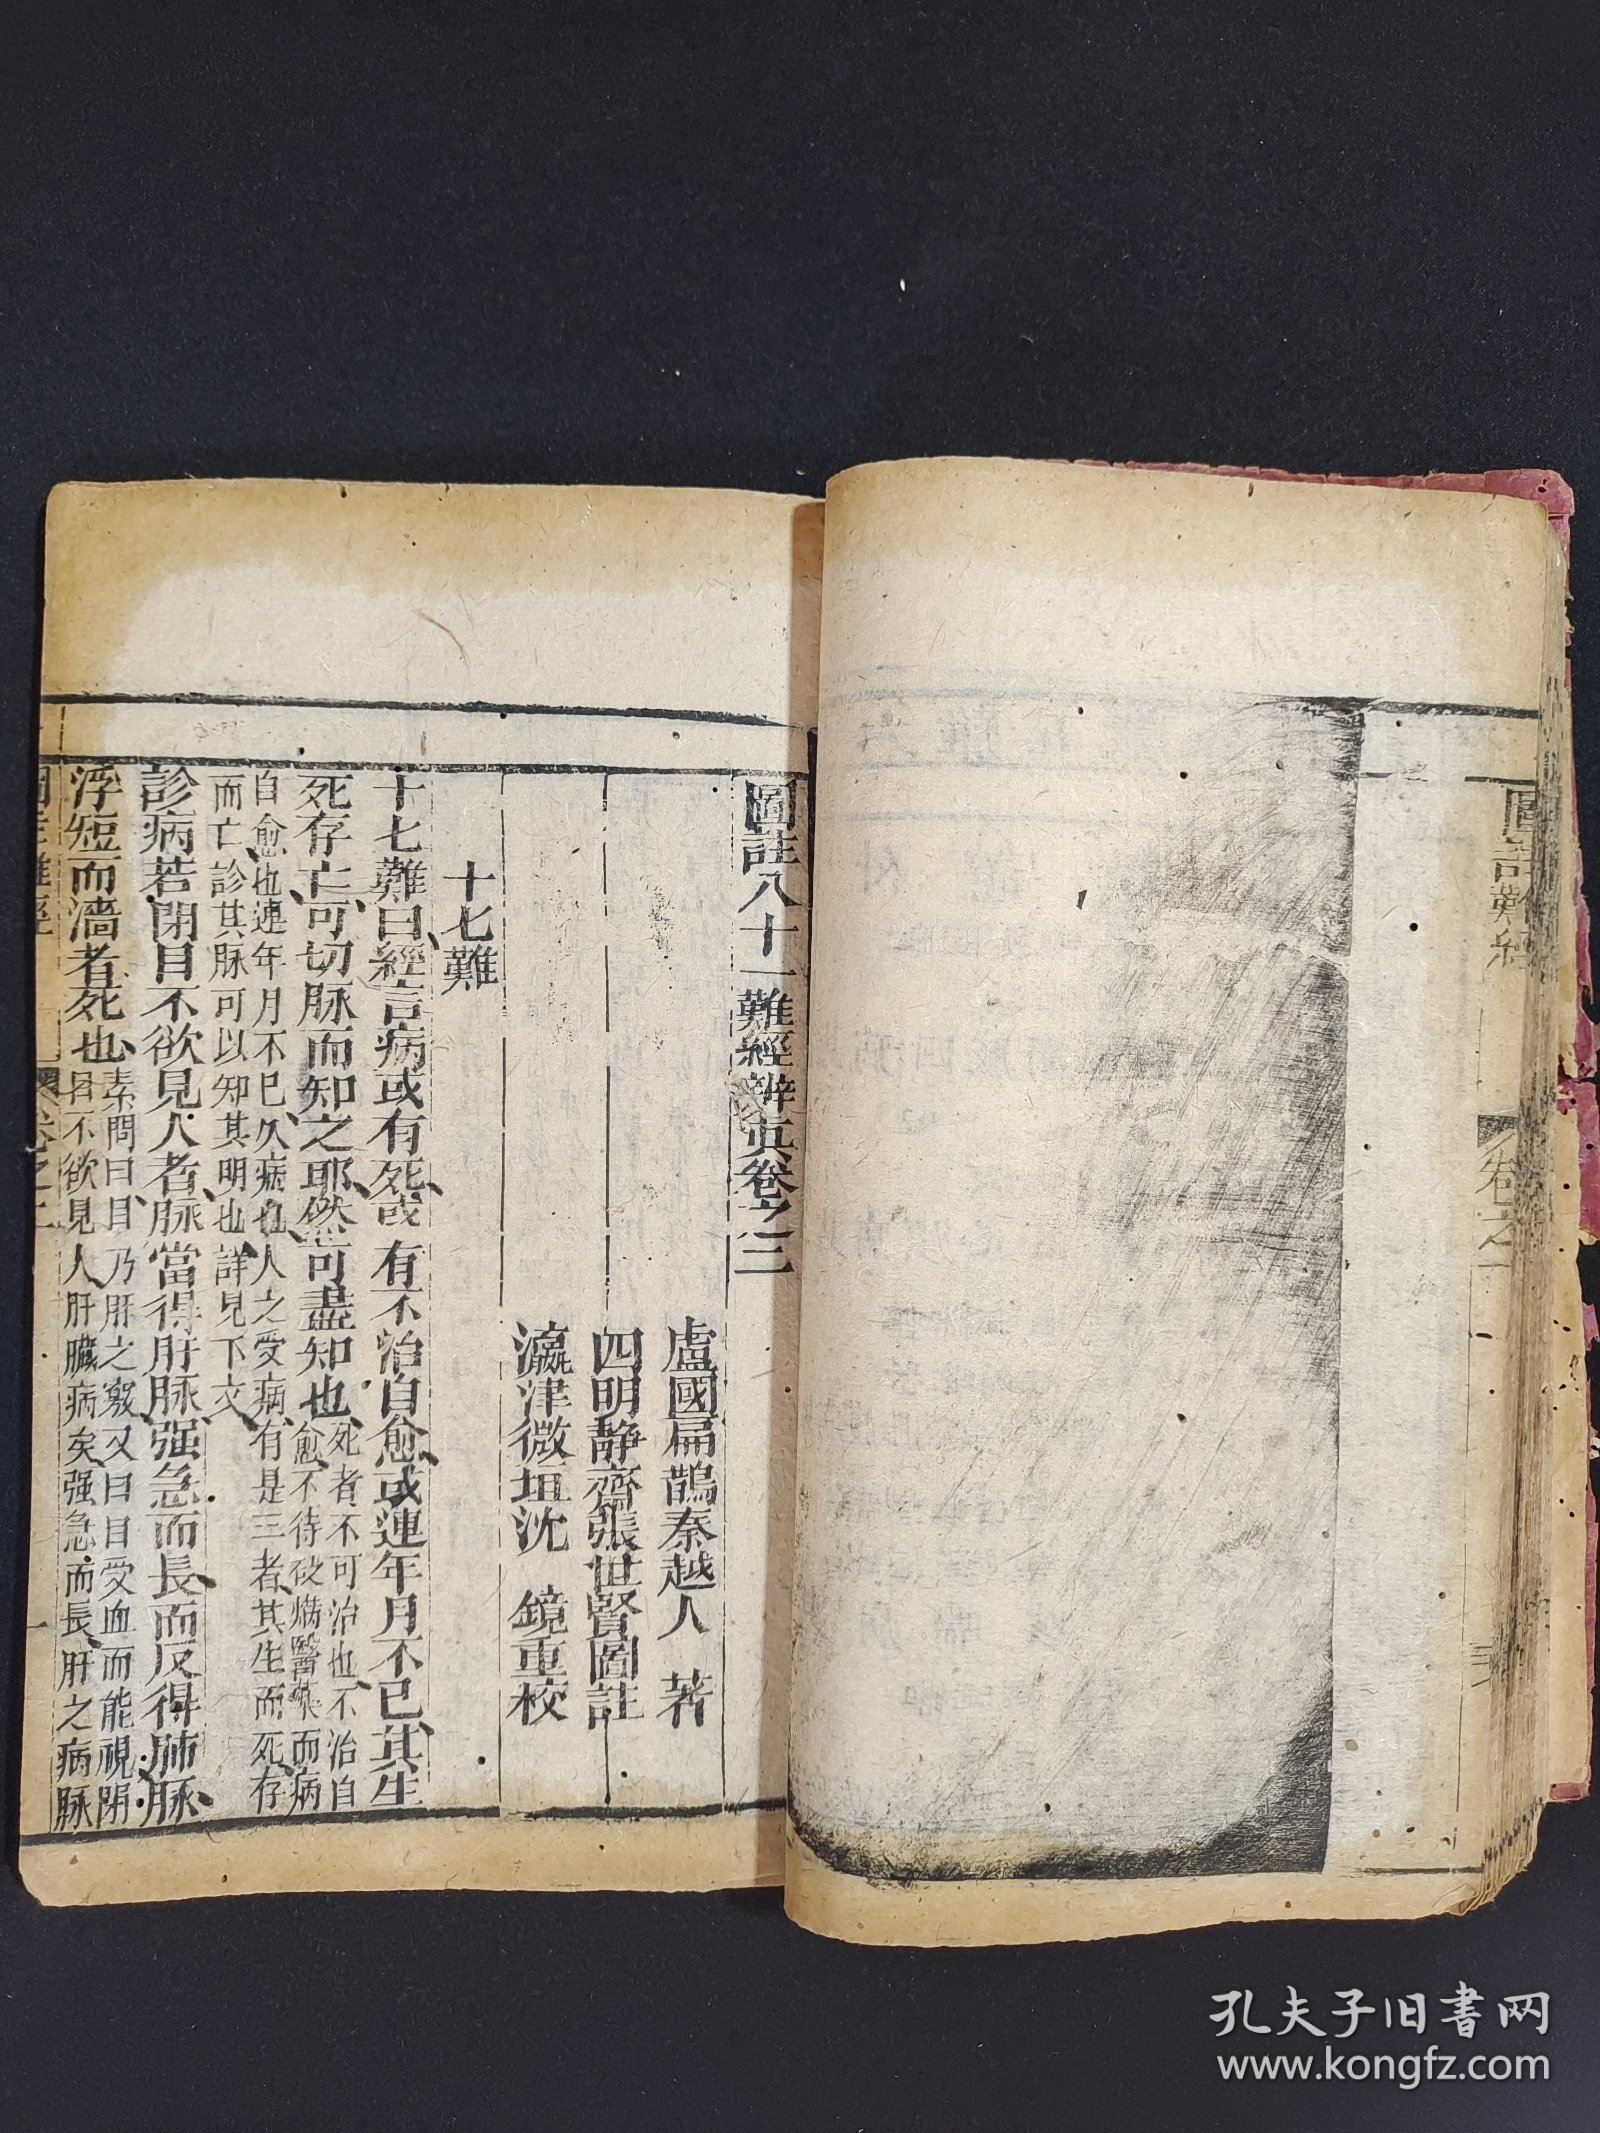 圖註八十一難經辨眞卷之三
盧國扁鵲秦越人 著
四明靜齋張世賢圖註
瀛津微垣沈 鏡重校
十七難
十七難曰經言病或有死或有不治自愈或連年月不已其生
死存亡可切脉而知之耶然可盡知也死者不可治也不治自
愈不待砭焫醫藥而病
自愈也連年月不已久病也人之受病有是三者其生而死存
而亡診其脉可以知其明也詳見下文
診病若閉目不欲見人者脉當得肝脉强急而長而反得肺脉
浮短而濇者死也素問曰目乃肝之竅又曰目受血而能視閉
目不欲見人肝臟病矣强急而長肝之病脉
圖註難經
卷之三
一
圖註難經
卷之二
孔夫子旧書网
www.kongfz.com